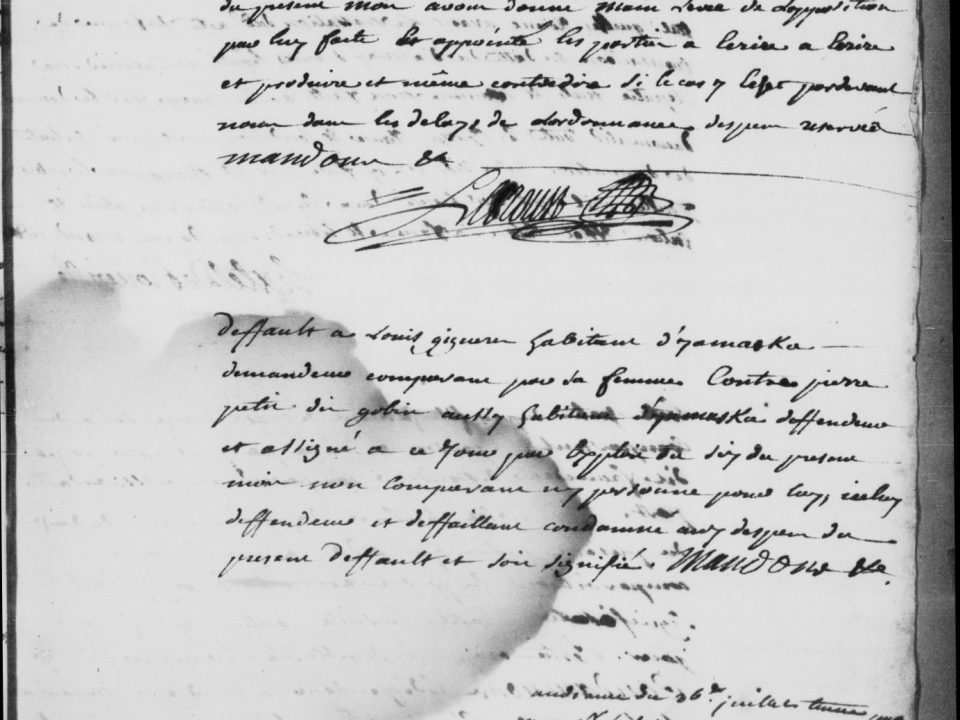 du present mois avons donné main Levée de Lopposition
par luy faite Et appointé les parties a Ecrire a Ecrire
et produire et même contredire si le cas y Echet pardevant
nous dans les delays de Lordonnance, despens reservés
mandons &a
deffault a Louis giguere habitant d'yamaska
demandeur comparant par sa femme Contre pierre
petit dit gobin aussy habitant d'yamaska deffendeur
et assigné a ce Jour par Exploit du six du present
mois non Comparant ny personne pour Luy, iceluy
deffendeur et deffaillant condamné aux despens du
present deffault et soit signifié Mandons &a
audiance du 26e juillet tenue